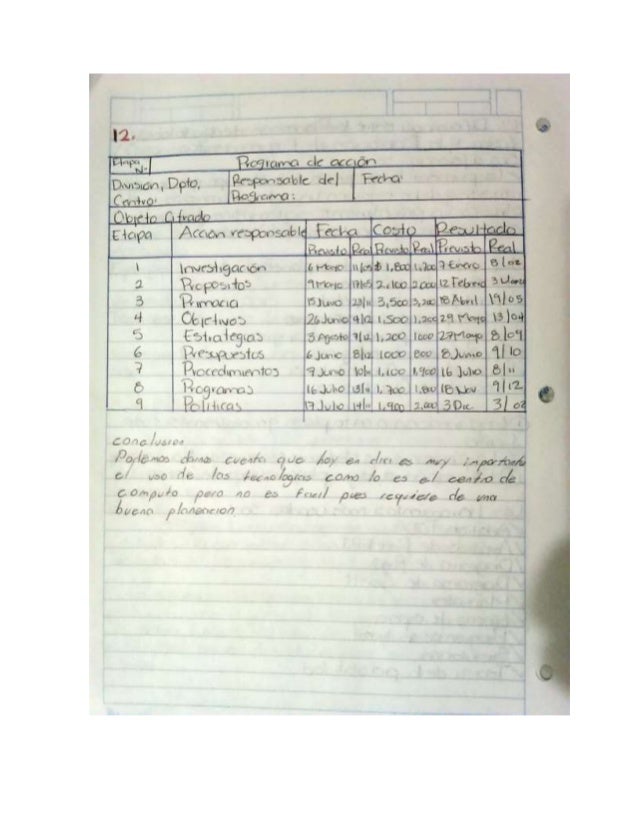 12.
Etapa N°. Programa de acción
División, Dpto, Centro: Responsable del Programa: Fecha:
Objeto Cifrado
Etapa Acción responsable Fecha Costo Resultado
Previsto Real Previsto Real Previsto Real
1 Investigación 6 Marzo $ 1,800 1,700 7 Enero 8/02
2 Propositos 9 Marzo 2,100 2,000 12 Febrero 3 Marzo
3 Primacia 15 Junio 3,500 3,200 18 Abril 19/05
4 Objetivos 26 Junio 9/12 1,500 1,200 29 Mayo 13/04
5 Estrategias 3 Agosto 1,200 1000 27 Mayo 8/09
6 Presupuestos 6 Junio 8/12 1000 800 8 Junio 9/10
7 Procedimientos 9 Junio 1,100 1,900 16 Julio 8/11
8 Programas 16 Julio 1,700 18 Nov 9/12
9 Politicas 17 Julio 1,900 2,000 3 Dic 3/02
conclusion
Podemos darnos cuenta que hoy en dia es muy importante
el uso de las tecnologias como lo es el centro de
computo pero no es facil pues requiere de una
buena planeacion